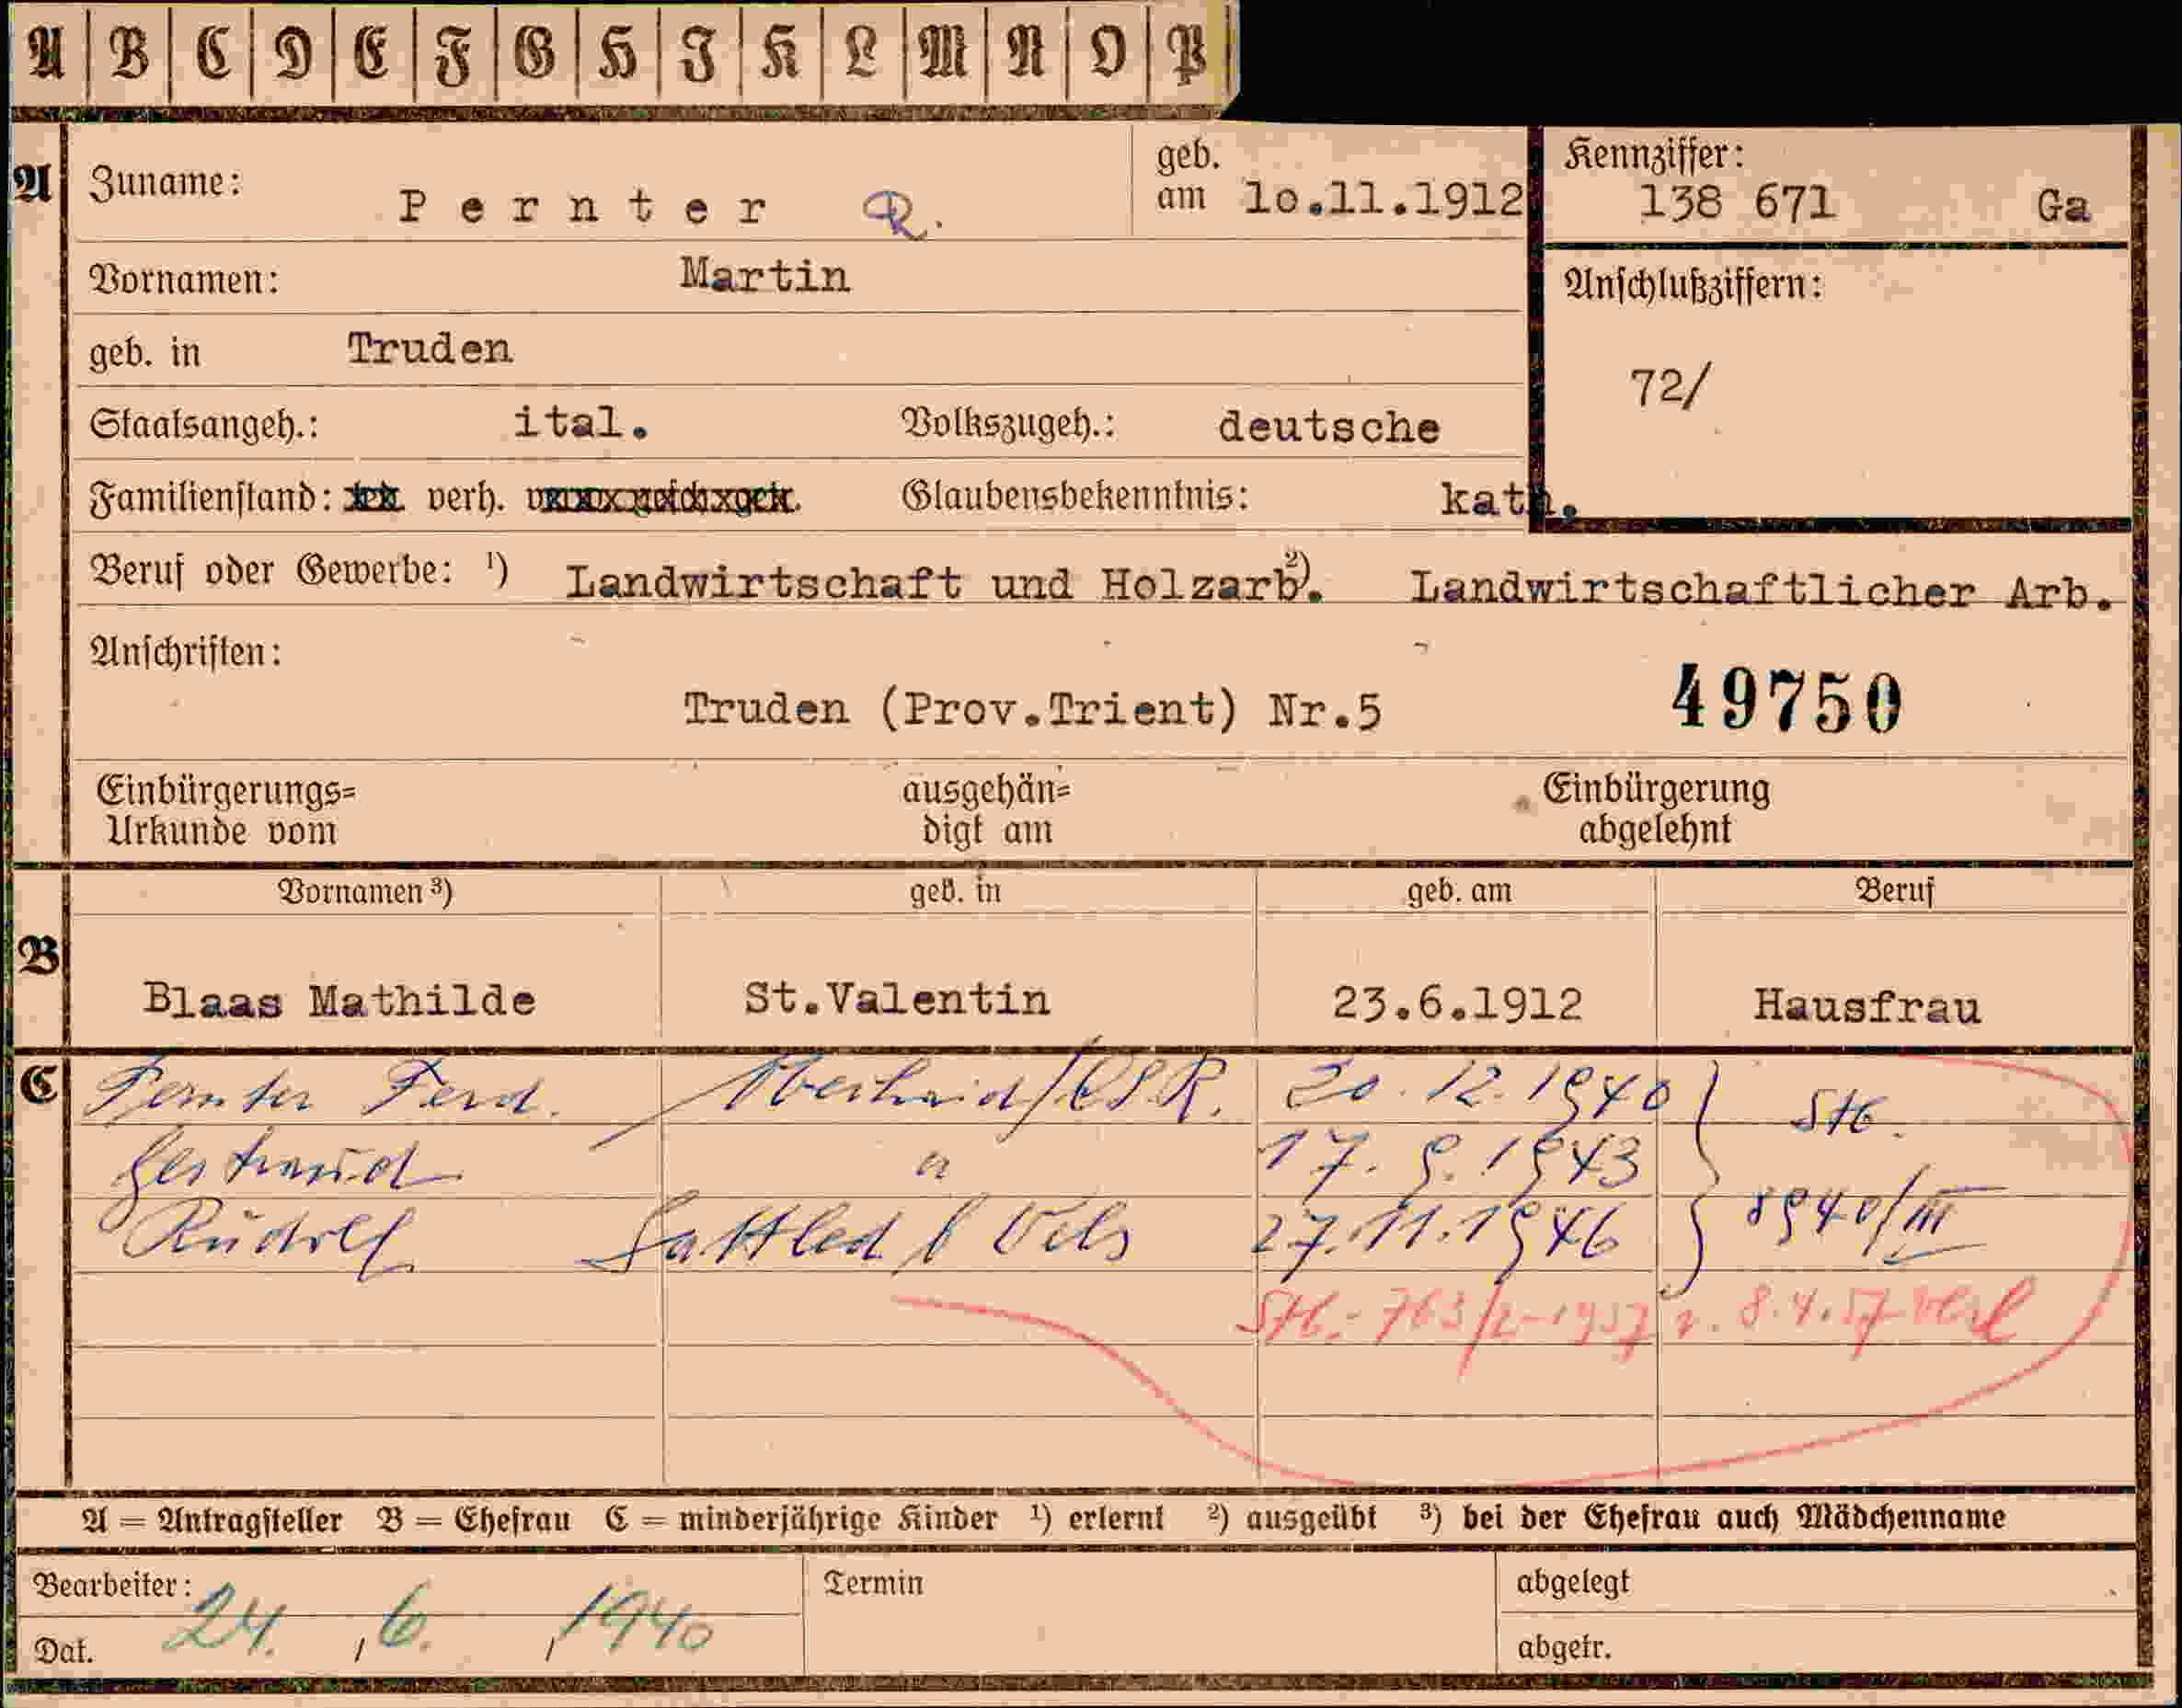 A B C D E F G H I K L M N O P
A Zuname: Pernter R. geb. am 10.11.1912 Kennziffer: 138 671 Ga
Vornamen: Martin Anschlußziffern:
geb. in Truden 72/
Staatsangeh.: ital. Volkszugeh.: deutsche
Familienstand: verh. Glaubensbekenntnis: kath.
Beruf oder Gewerbe: ¹) Landwirtschaft und Holzarb. ²) Landwirtschaftlicher Arb.
Anschriften:
Truden (Prov.Trient) Nr.5 49750
Einbürgerungs= ausgehän= Einbürgerung
Urkunde vom digt am abgelehnt
Vornamen ³) geb. in geb. am Beruf
B Blaas Mathilde St.Valentin 23.6.1912 Hausfrau
C Pernter Ferd. Oberhaid/ČSR. 20.12.1940 Stb.
Gertraud " 17.9.1943
Rudolf 27.11.1946 8940/III
Stb.- 763/2-1957 v. 8.4.57
A = Antragsteller B = Ehefrau C = minderjährige Kinder ¹) erlernt ²) ausgeübt ³) bei der Ehefrau auch Mädchenname
Bearbeiter: Termin abgelegt
Dat. 24. , 6. , 1940 abgetr.